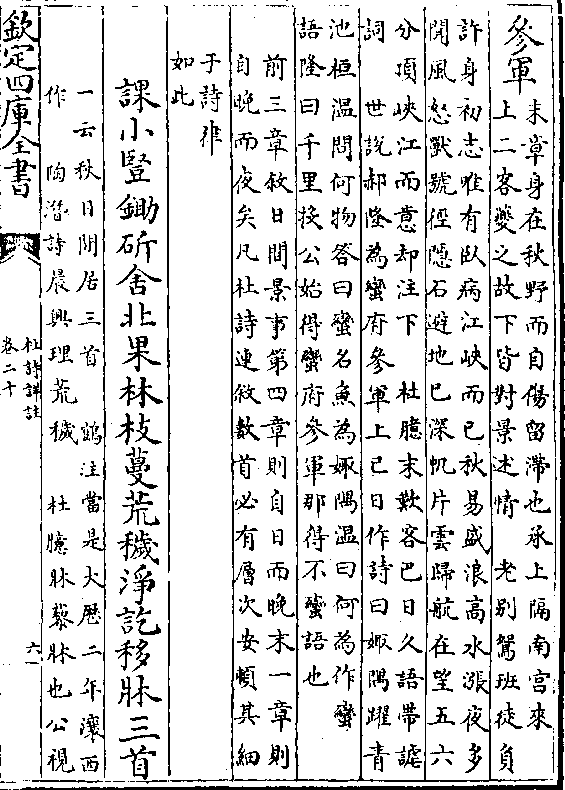 參軍
末章身在秋野而自傷留滯也承上隔南宮來
上二客變之故下皆對景述情　老别鴛班徒負
許身初志唯有臥病江峽而已秋易盛浪高水漲夜多
聞風怒獸號徑隱石避地已深帆片雲歸航在望五六
分頂峽江而意却注下　杜臆末歎客巴日久語帶謔
詞　世說郝隆為蠻府參軍上巳日作詩曰娵隅躍青
池桓溫問何物答曰蠻名魚為娵隅溫曰何為作蠻
語隆曰千里投公始得蠻府參軍那得不蠻語也
前三章敘日間景事第四章則自日而晚末一章則
自晚而夜矣凡杜詩連敘數首必有層次安頓其細
于詩律
如此
課小豎鋤斫舍北果林枝蔓荒穢淨訖移牀三首
一云秋日閒居三首　鶴注當是大厯二年瀼西
作　陶潛詩晨興理荒穢　杜臆牀藜牀也公視
欽定四庫全書
杜詩詳註
卷二十
六一